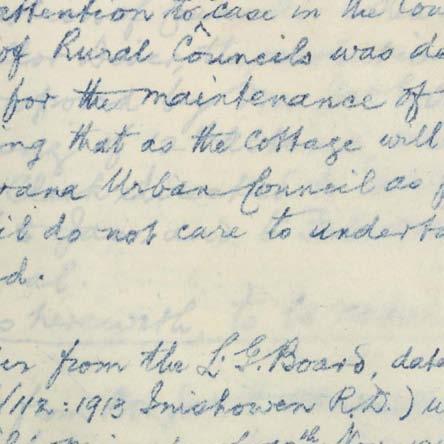 attention to case in the Cou
of Rural Councils was de
for the maintenance of
ing that as the cottage will
rana Urban Council as f
il do not care to underta
d.
er from the L. G. Board, dat
/112:1913 Inishowen R.D.) u